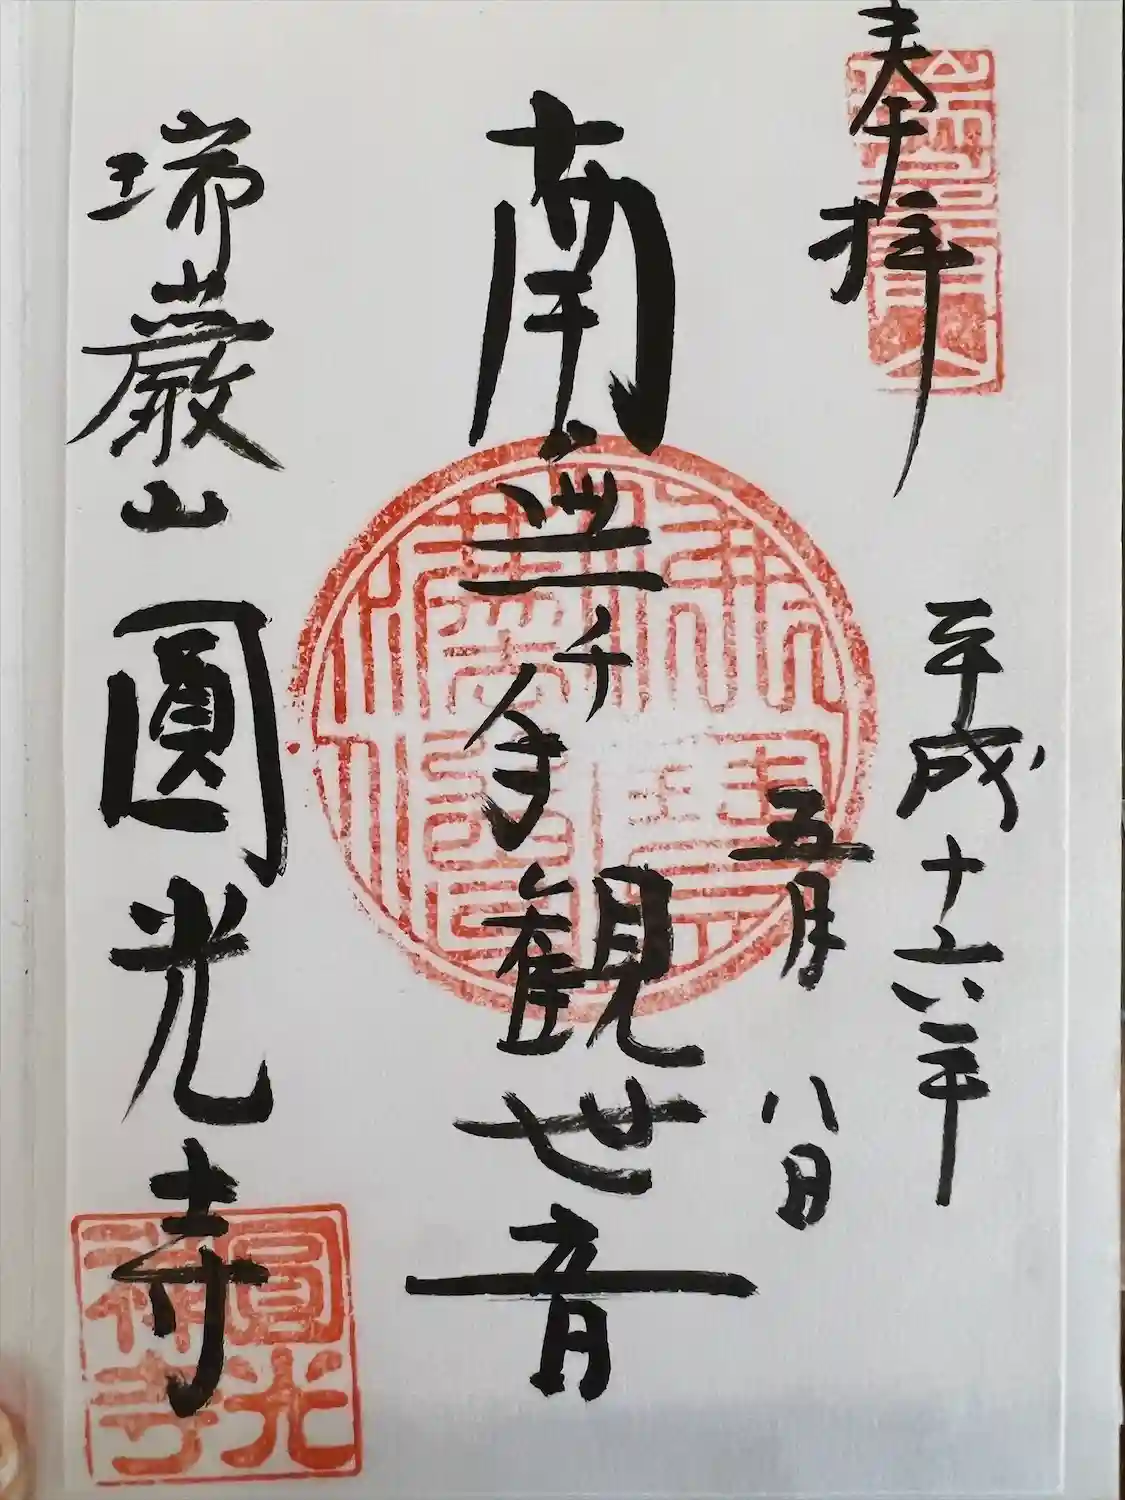 奉拝
平成十六年
五月八日
南無千手観世音
瑞巌山圓光寺
圓光
禅寺